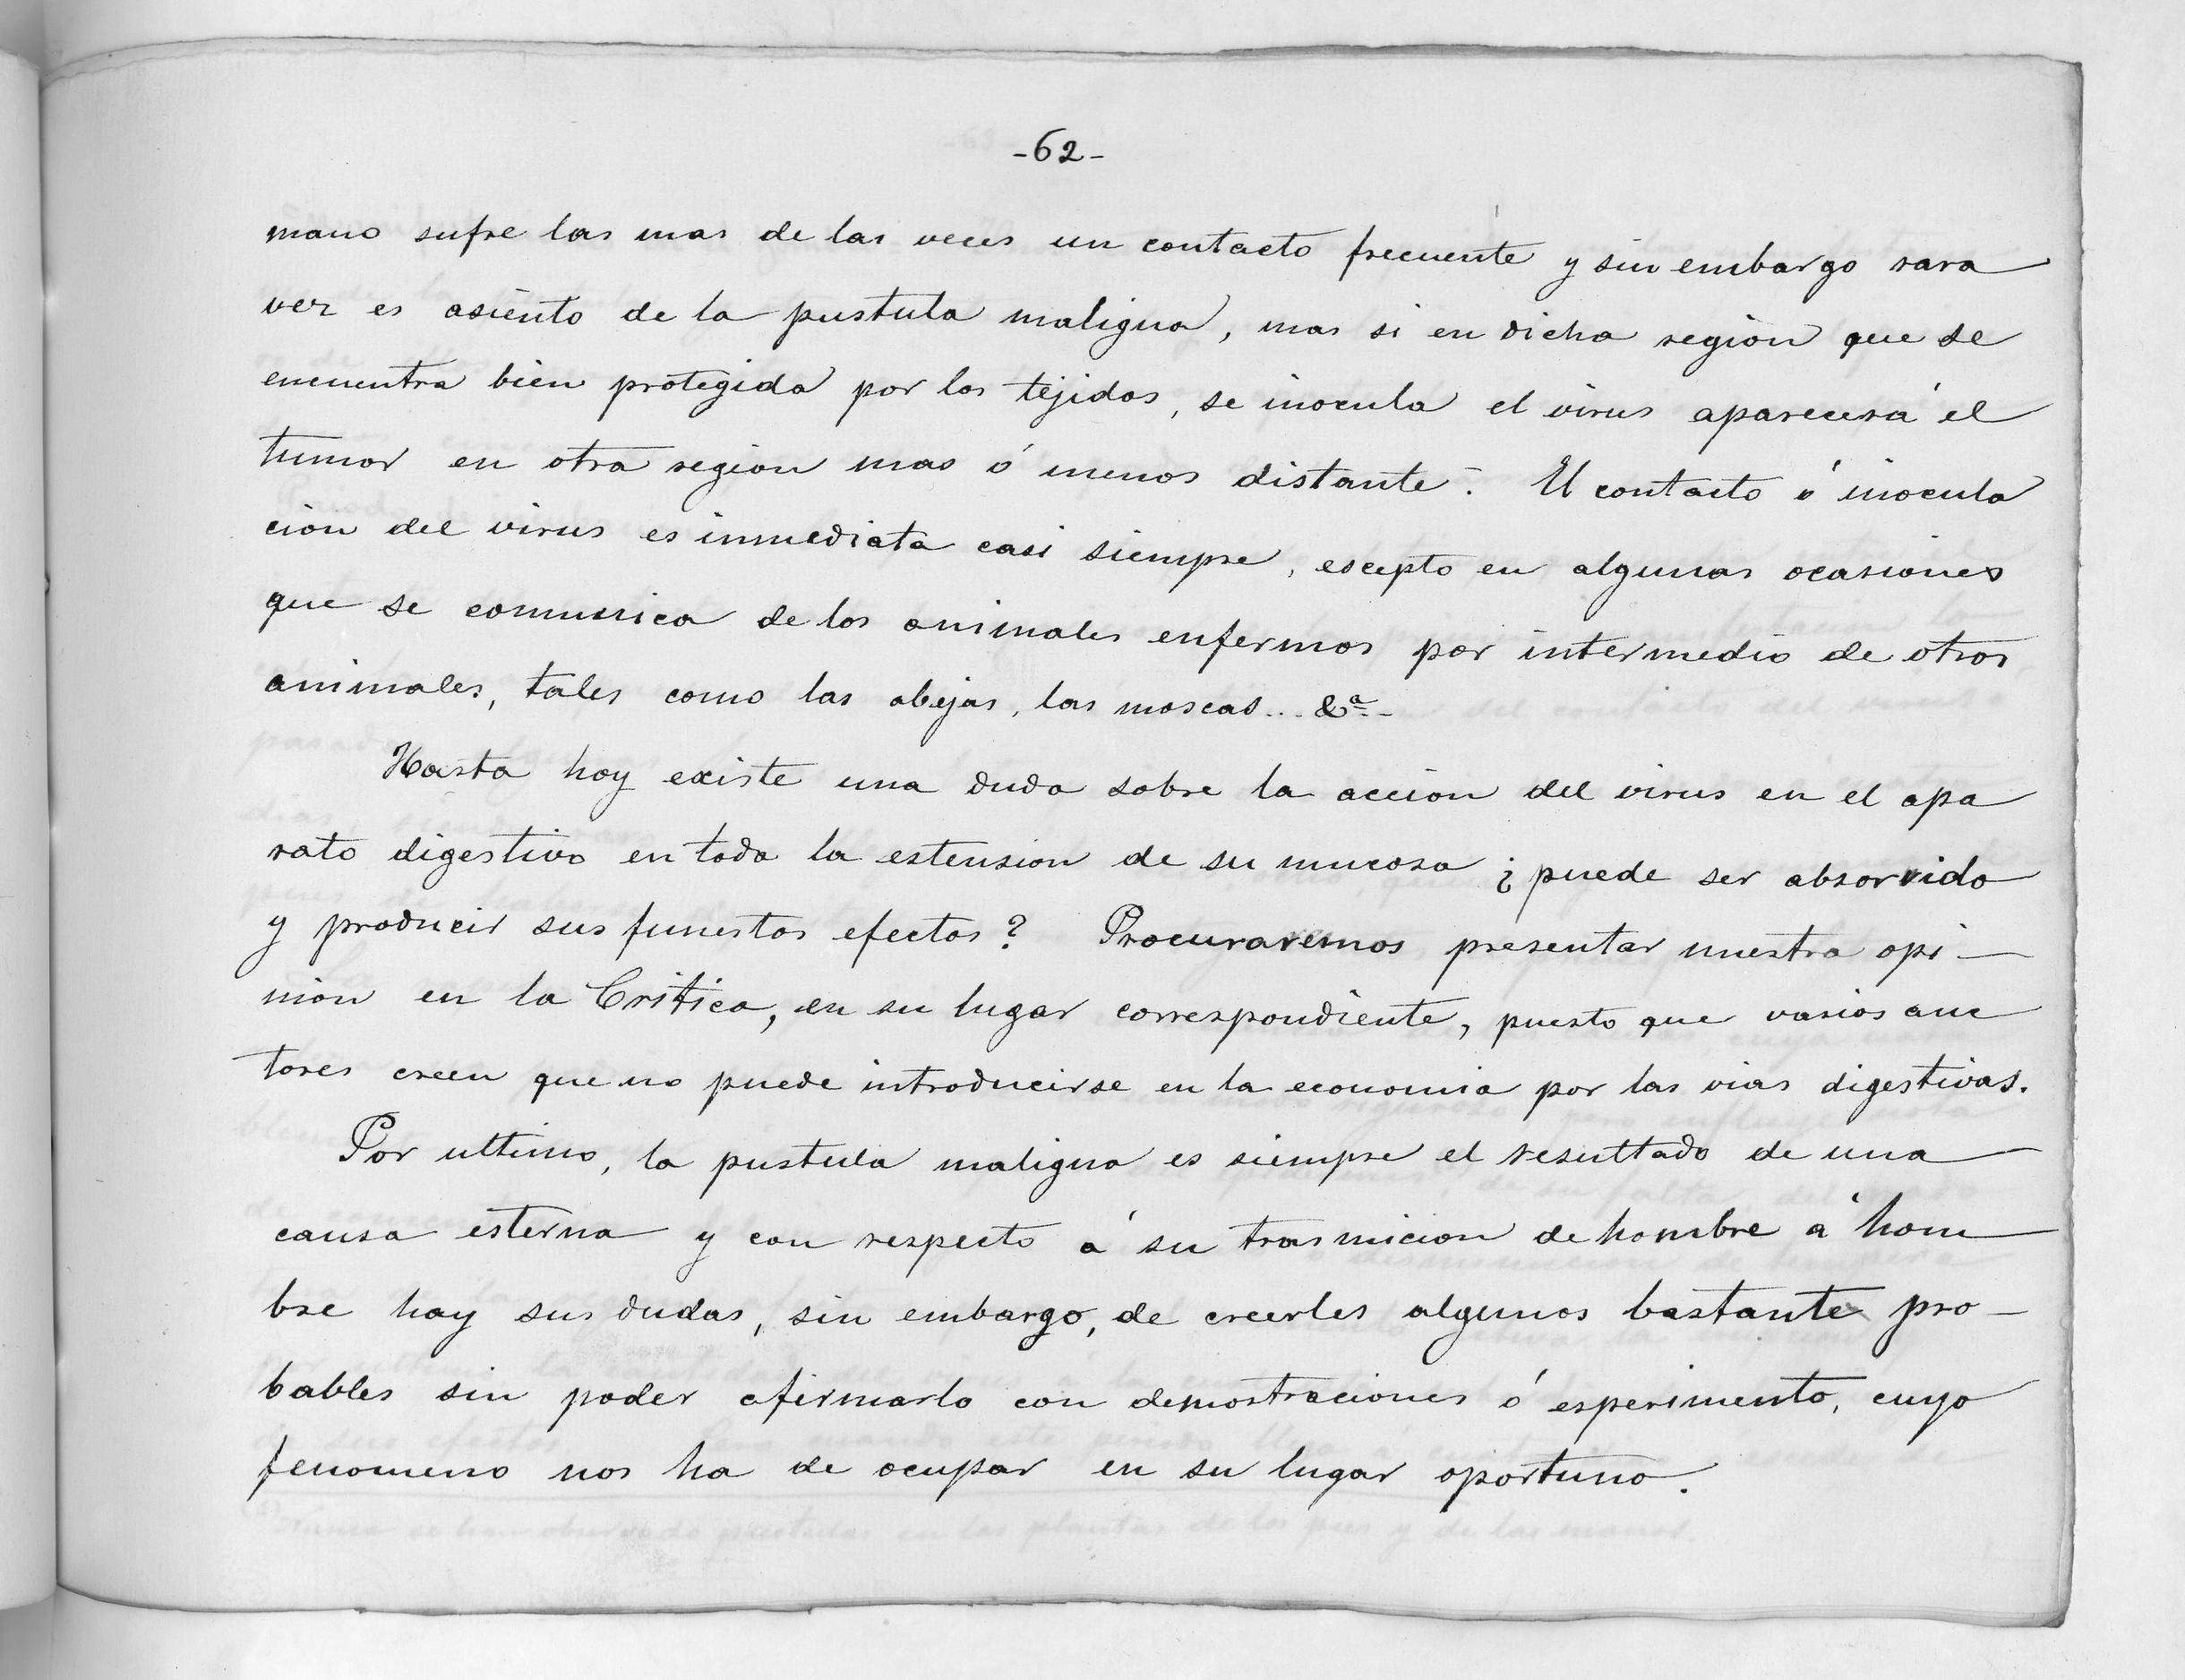 -62-
mano sufre las mas de las veces un contacto frecuente y sin embargo rara
vez es asiento de la pustula maligna, mas si en dicha region que se
encuentra bien protegida por los tejidos, se inocula el virus aparecerá el
tumor en otra region mas ó menos distante.- El contacto ó inocula
cion del virus es inmediata casi siempre, escepto en algunas ocasiones
que se comunica de los animales enfermos por intermedio de otros
animales, tales como las abejas, las moscas... &ª-
Hasta hoy existe una duda sobre la accion del virus en el apa
rato digestivo en toda la estension de su mucosa ¿puede ser absorvido
y producir sus funestos efectos? Procuraremos presentar nuestra opi-
nion en la Critica, en su lugar correspondiente, puesto que varios auc
tores creen que no puede introducirse en la economia por las vias digestivas.
Por ultimo, la pustula maligna es siempre el resultado de una
causa esterna y con respecto á su trasmicion de hombre á hom
bre hay sus dudas, sin embargo, de creerles algunos bastante pro-
bables sin poder afirmarlo con demostraciones ó esperimento, cuyo
fenomeno nos ha de ocupar en su lugar oportuno.